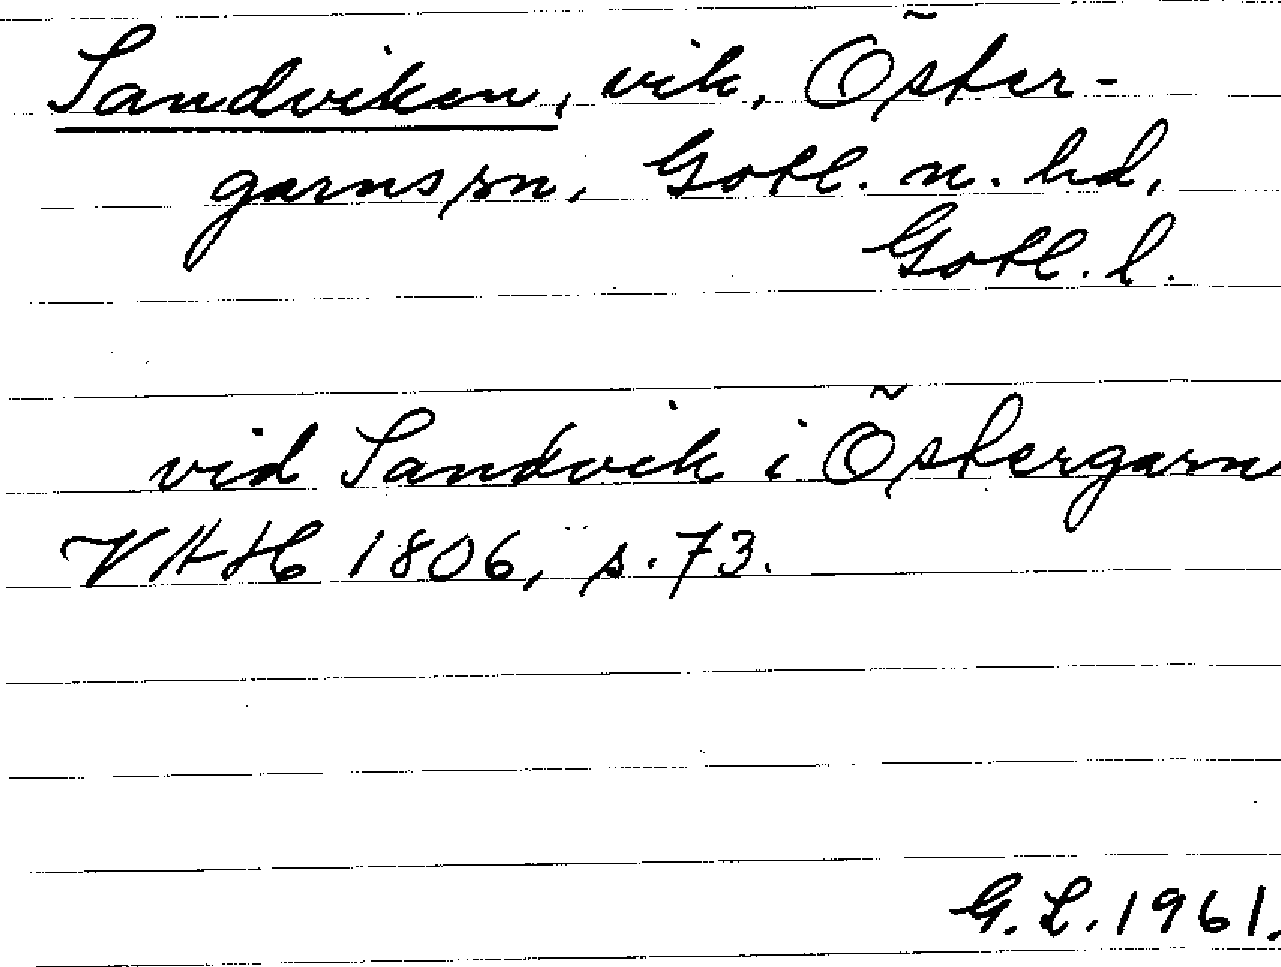 Sandviken, vik, Öster-
garns sn, Gotl. n. hd,
Gotl. l.
vid Sandvik i Östergarn
VAH 1806, s. 73.
G. L. 1961.